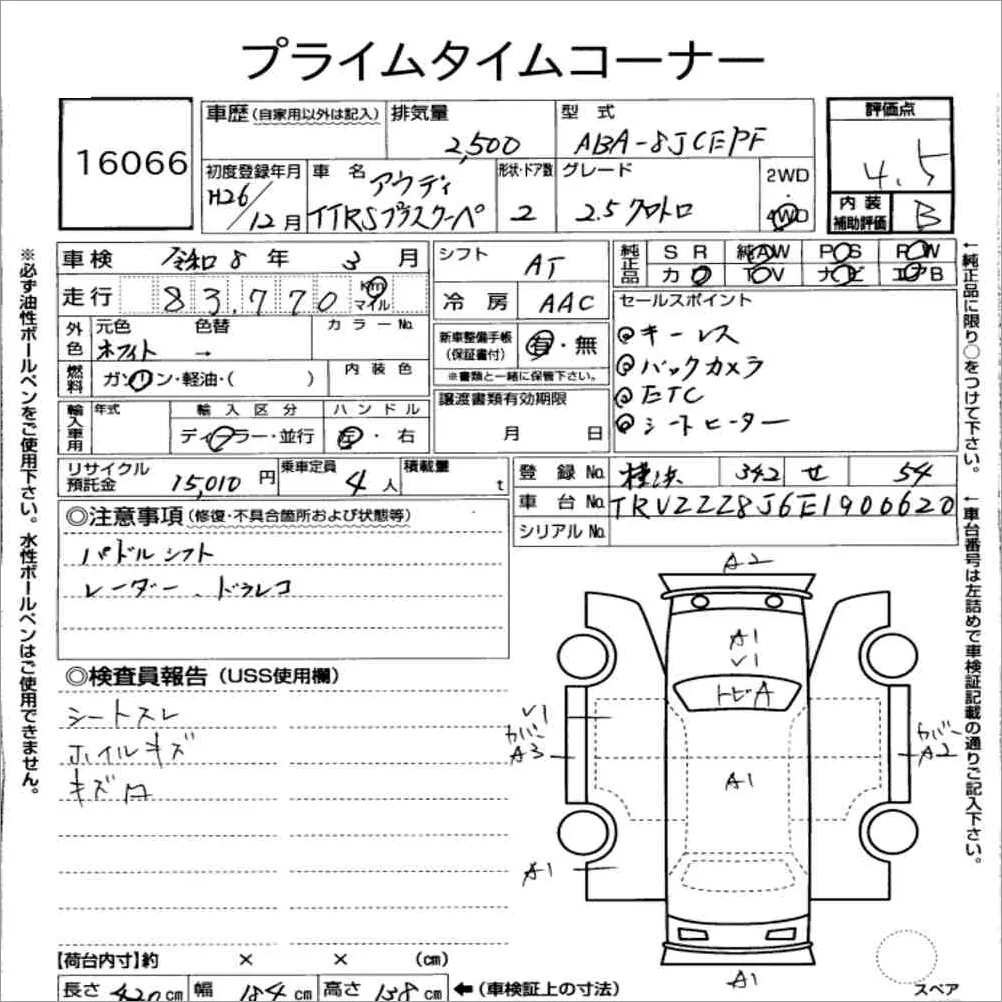 プライムタイムコーナー
16066
車歴(自家用以外は記入)
排気量
2,500
型式
ABA-8JCEPF
評価点
4.5
初度登録年月
H26/12月
車名
アウディ
TTRSプラスクーペ
形状・ドア数
2
グレード
2.5クワトロ
2WD
・
4WD
内装
補助評価
B
車検 令和8年3月
シフト
AT
純正品
SR
純AW
PS
PW
カワ
TV
ナビ
エアB
走行
83,770
km
マイル
冷房
AAC
セールスポイント
◎キーレス
◎バックカメラ
◎ETC
◎シートヒーター
外色
元色
ホワイト
色替
→
カラーNo.
新車整備手帳
(保証書付)
有・無
※書類と一緒に保管下さい。
燃料
ガソリン・軽油・( )
内装色
譲渡書類有効期限
月 日
輸入車用
年式
輸入区分
ディーラー・並行
ハンドル
左・右
リサイクル
預託金
15,010円
乗車定員
4人
積載量
t
登録No.
横浜 342 せ 54
車台No.
TRUZZZ8J6E1900620
シリアルNo.
◎注意事項(修復・不具合箇所および状態等)
パドルシフト
レーダー、ドラレコ
◎検査員報告(USS使用欄)
シートスレ
ホイルキズ
キズ
A2
A1
V1
トビA
V1
カバー
A3
カバー
A2
A1
A1
A1
スペア
【荷台内寸】約 × × (cm)
長さ 420cm
幅 184cm
高さ 138cm
←(車検証上の寸法)
※必ず油性ボールペンをご使用下さい。水性ボールペンはご使用できません。
←純正品に限り○をつけて下さい。
←車台番号は左詰めで車検証記載の通りご記入下さい。